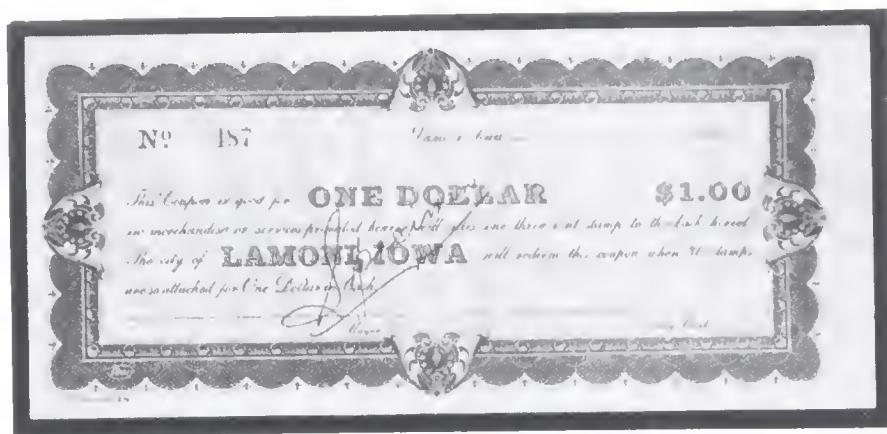 Nº 187
This Coupon is good for ONE DOLLAR $1.00
in merchandise or services provided bearer will one three cent stamp to the back hereof
The city of LAMONI, IOWA will redeem this coupon when stamps
are so attached for One Dollar in Cash.
Mayor